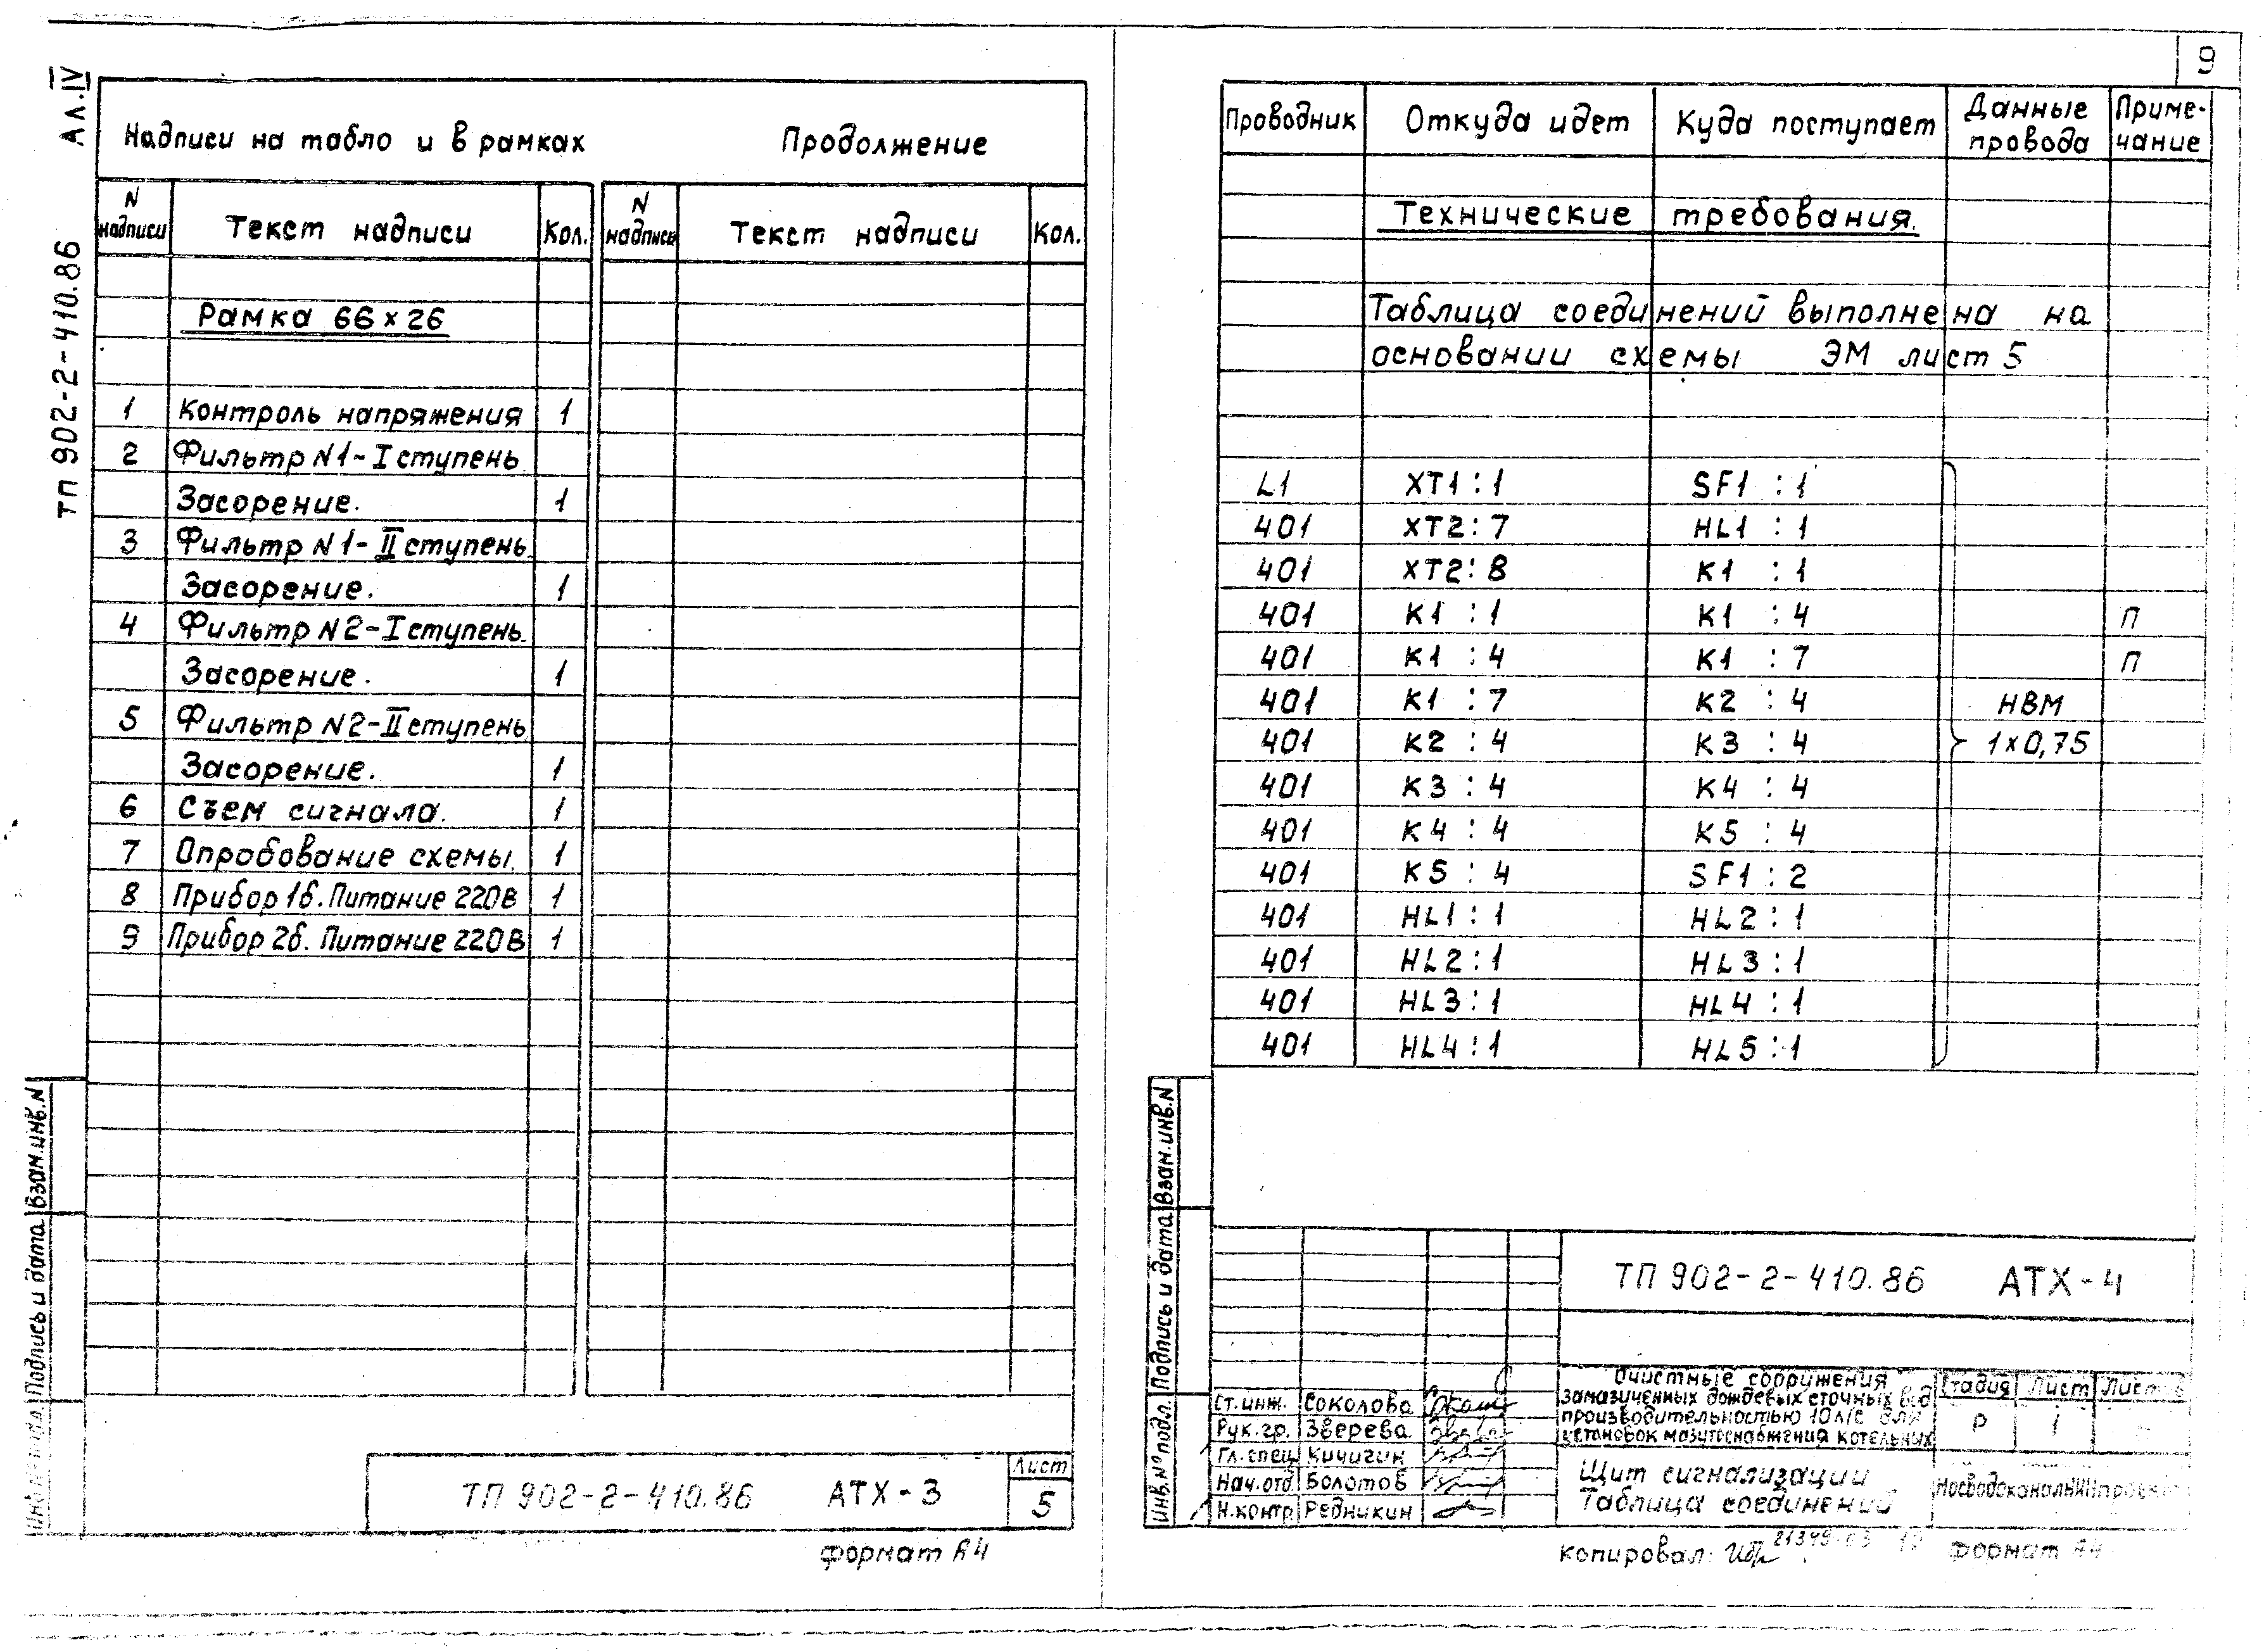 9
Ал.IV
ТП 902-2-410.86
Надписи на табло и в рамках Продолжение
N надписи Текст надписи Кол. N надписи Текст надписи Кол.
Рамка 66х26
1 Контроль напряжения 1
2 Фильтр N1-I ступень
Засорение. 1
3 Фильтр N1-II ступень
Засорение. 1
4 Фильтр N2-I ступень
Засорение. 1
5 Фильтр N2-II ступень
Засорение. 1
6 Съем сигнала. 1
7 Опробование схемы. 1
8 Прибор 1б. Питание 220В 1
9 Прибор 2б. Питание 220В 1
Взам.инв.N
Подпись и дата
ТП 902-2-410.86 АТХ-3
Лист
5
формат А4
Проводник Откуда идет Куда поступает Данные провода Приме-чание
Технические требования.
Таблица соединений выполнена на
основании схемы ЭМ лист 5
L1 XT1:1 SF1:1
401 XT2:7 HL1:1
401 XT2:8 K1:1
401 K1:1 K1:4 П
401 K1:4 K1:7 П
401 K1:7 K2:4 НВМ
401 K2:4 K3:4 1х0,75
401 K3:4 K4:4
401 K4:4 K5:4
401 K5:4 SF1:2
401 HL1:1 HL2:1
401 HL2:1 HL3:1
401 HL3:1 HL4:1
401 HL4:1 HL5:1
Взам.инв.N
Подпись и дата
Инв.№ подл.
ТП 902-2-410.86 АТХ-4
Очистные сооружения
замазученных дождевых сточных вод
производительностью 10л/с для
установок мазутоснабжения котельных
Стадия Лист Листов
Р 1
Ст.инж. Соколова
Рук.гр. Зверева
Гл.спец. Кичигин
Нач.отд. Болотов
Н.контр. Редникин
Щит сигнализации
Таблица соединений
МосводоканалНИИпроект
Копировал: 21349-03 формат А4